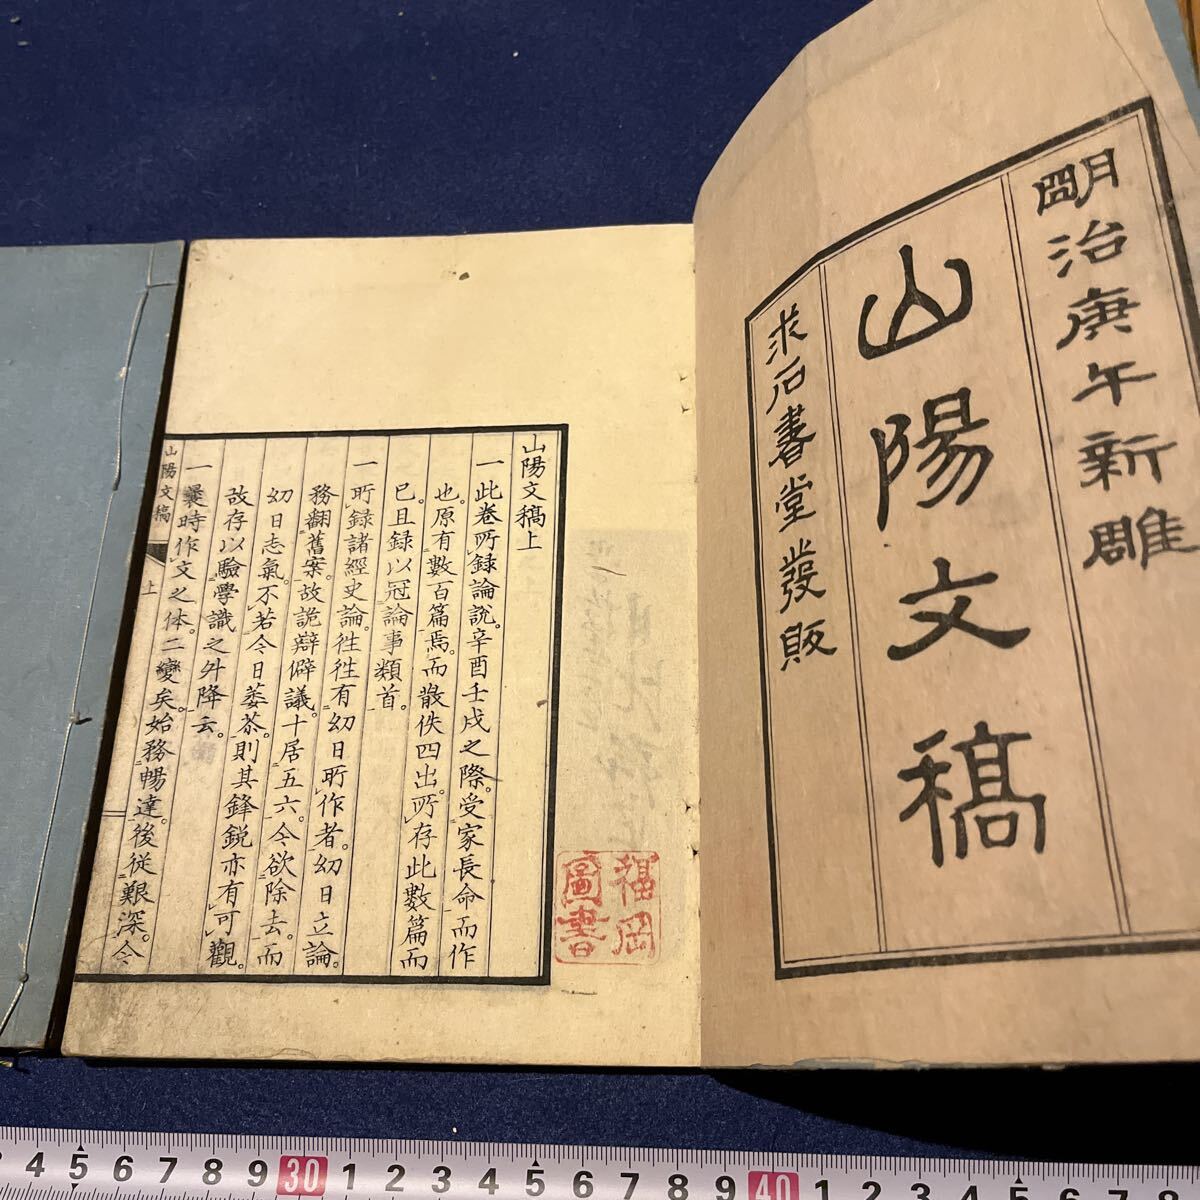 明治庚午新雕
山陽文稿
求石書堂發販
山陽文稿上
一此卷所録論説。辛酉壬戌之際。受家長命而作
也。原有數百篇焉。而散佚四出。所存此數篇而
已。且録以冠論事類首。
一所録諸經史論。徃徃有幼日所作者。幼日立論。
務翻舊案。故詭辯僻議。十居五六。今欲除去。而
幼日志氣。不若今日萎苶。則其鋒鋭亦有可觀。
故存以驗學識之舛降云。
一曩時作文之体。二變矣。始務暢達。後從艱深。今
山陽文稿
上
福岡
圖書
4 5 6 7 8 9 30 1 2 3 4 5 6 7 8 9 40 1 2 3 4 5 6 7